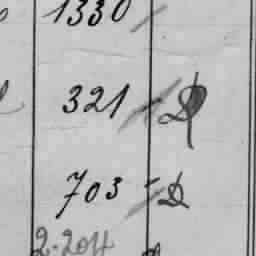 1330
321 - D
703 = D
2-204